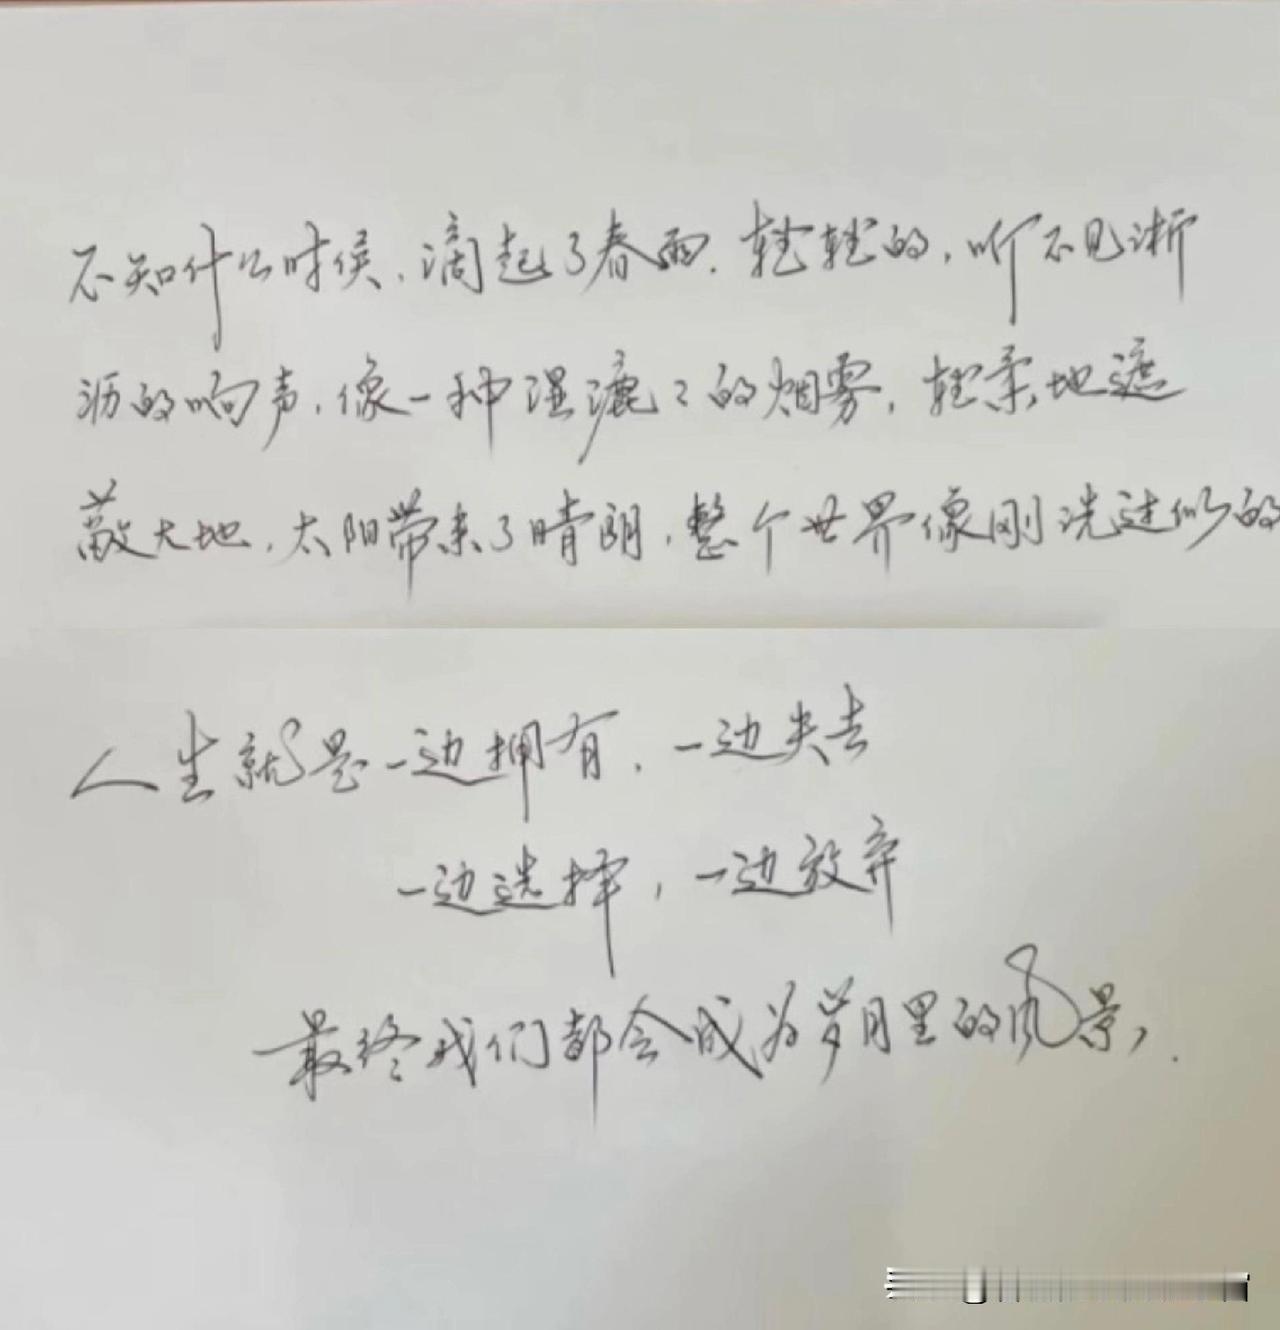 不知什么时侯，滴起了春雨，轻轻的，听不见淅
沥的响声，像一种湿漉々的烟雾，轻柔地遮
蔽大地，太阳带来了晴朗，整个世界像刚洗过似的
人生就是一边拥有，一边失去
一边选择，一边放弃
最终我们都会成为岁月里的风景，